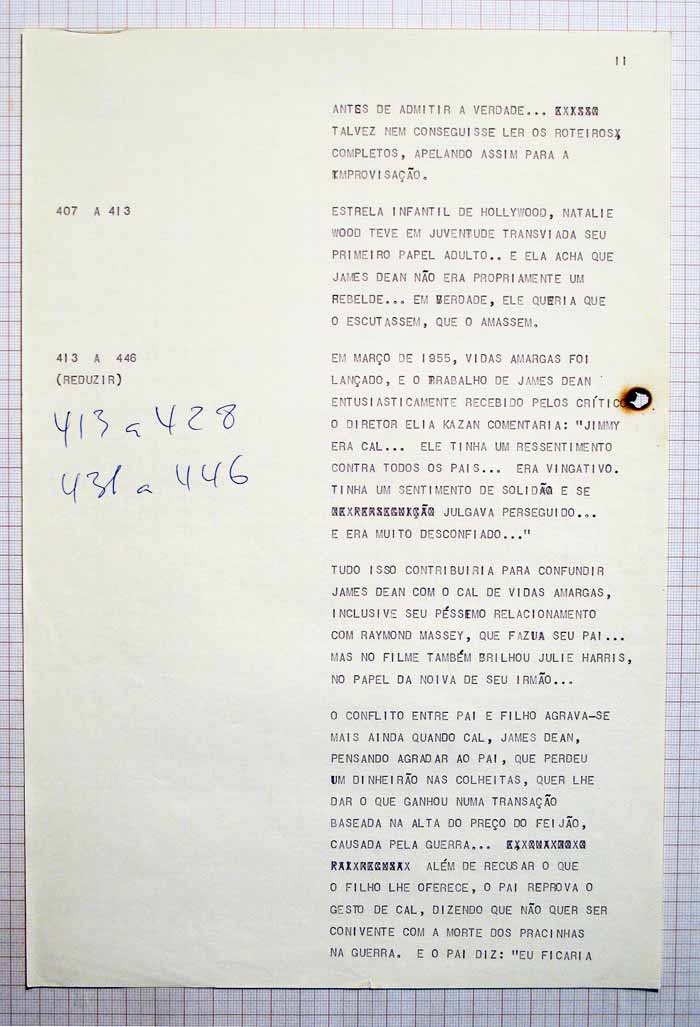 11
ANTES DE ADMITIR A VERDADE...
TALVEZ NEM CONSEGUISSE LER OS ROTEIROS
COMPLETOS, APELANDO ASSIM PARA A
IMPROVISAÇÃO.
407 A 413
ESTRELA INFANTIL DE HOLLYWOOD, NATALIE
WOOD TEVE EM JUVENTUDE TRANSVIADA SEU
PRIMEIRO PAPEL ADULTO.. E ELA ACHA QUE
JAMES DEAN NÃO ERA PROPRIAMENTE UM
REBELDE... EM VERDADE, ELE QUERIA QUE
O ESCUTASSEM, QUE O AMASSEM.
413 A 446
(REDUZIR)
413 a 428
431 a 446
EM MARÇO DE 1955, VIDAS AMARGAS FOI
LANÇADO, E O TRABALHO DE JAMES DEAN
ENTUSIASTICAMENTE RECEBIDO PELOS CRÍTICO
O DIRETOR ELIA KAZAN COMENTARIA: "JIMMY
ERA CAL... ELE TINHA UM RESSENTIMENTO
CONTRA TODOS OS PAIS... ERA VINGATIVO.
TINHA UM SENTIMENTO DE SOLIDÃO E SE
JULGAVA PERSEGUIDO...
E ERA MUITO DESCONFIADO..."
TUDO ISSO CONTRIBUIRIA PARA CONFUNDIR
JAMES DEAN COM O CAL DE VIDAS AMARGAS,
INCLUSIVE SEU PÉSSEMO RELACIONAMENTO
COM RAYMOND MASSEY, QUE FAZIA SEU PAI...
MAS NO FILME TAMBÉM BRILHOU JULIE HARRIS,
NO PAPEL DA NOIVA DE SEU IRMÃO...
O CONFLITO ENTRE PAI E FILHO AGRAVA-SE
MAIS AINDA QUANDO CAL, JAMES DEAN,
PENSANDO AGRADAR AO PAI, QUE PERDEU
UM DINHEIRÃO NAS COLHEITAS, QUER LHE
DAR O QUE GANHOU NUMA TRANSAÇÃO
BASEADA NA ALTA DO PREÇO DO FEIJÃO,
CAUSADA PELA GUERRA...
ALÉM DE RECUSAR O QUE
O FILHO LHE OFERECE, O PAI REPROVA O
GESTO DE CAL, DIZENDO QUE NÃO QUER SER
CONIVENTE COM A MORTE DOS PRACINHAS
NA GUERRA. E O PAI DIZ: "EU FICARIA